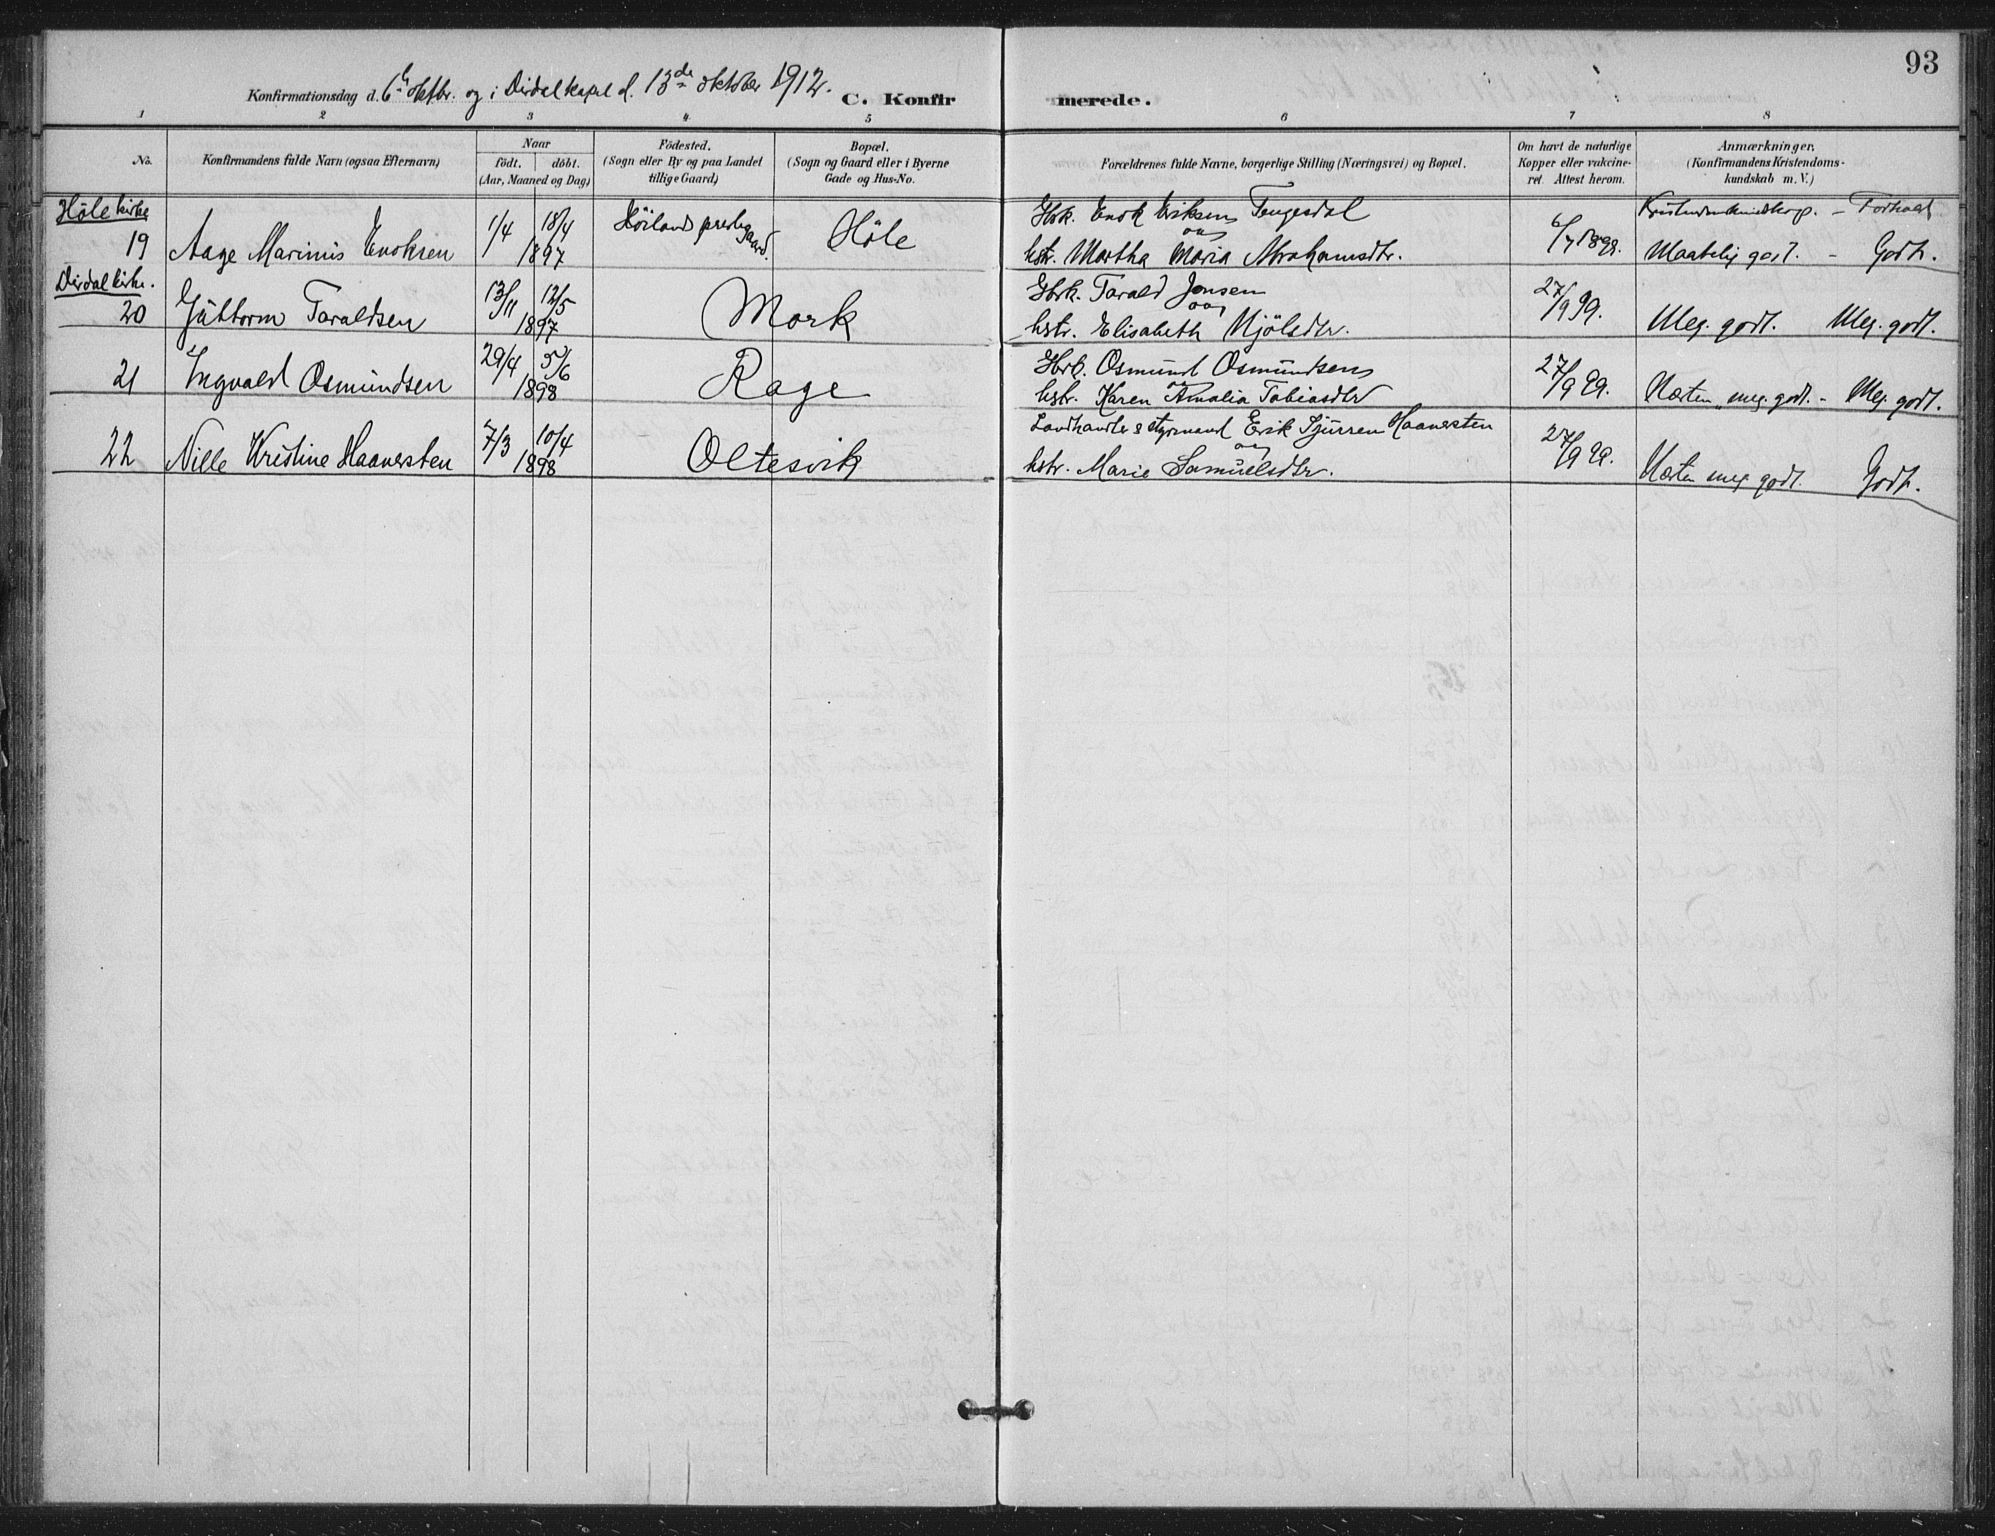 93
Konfirmationsdag d. 6te oktbr. og i Dirdal kapel d. 13de oktober 1912. C. Konfirmerede.
1 2 3 4 5 6 7 8
No. Konfirmandens fulde Navn (ogsaa Efternavn) Naar Födested. Bopæl. Forældrenes fulde Navne, borgerlige Stilling (Næringsvei) og Bopæl. Om havt de naturlige Anmærkninger.
födt. döbt. (Sogn eller By og paa Landet (Sogn og Gaard eller i Byerne Kopper eller vakcine- (Konfirmandens Kristendoms-
(Aar, Maaned og Dag) tillige Gaard) Gade og Hus-No. ret. Attest herom. kundskab m. V.)
Höle kirke Kristendomskundskap. – Forhold
19 Aage Marinus Enoksen 1/4 18/4 1897 Höilands prestegaard. Höle Gbrk. Enok Eriksen Tengesdal
og
hstr. Martha Maria Abrahamsdtr. 6/7 1898. Maadelig godt. – Godt.
Dirdal kirke.
20 Guttorm Taraldsen 13/11 12/5 1897 Mork Gbrk. Tarald Jonsen
og
hstr. Elisabeth Mjölsdtr. 27/9 99. Meg. godt. Meg. godt.
21 Ingvald Osmundsen 29/4 5/6 1898 Rage Gbrk. Osmund Osmundsen
og
hstr. Karen Amalia Tobiasdtr 27/9 99. Næsten meg. godt. – Meg. godt.
22 Nille Kristine Haaversten 7/3 10/4 1898 Oltesvik Landhandler & styrmand Erik Haaversten
og
hstr. Marie Samuelsdtr. 27/9 99. Næsten meg. godt. Godt.